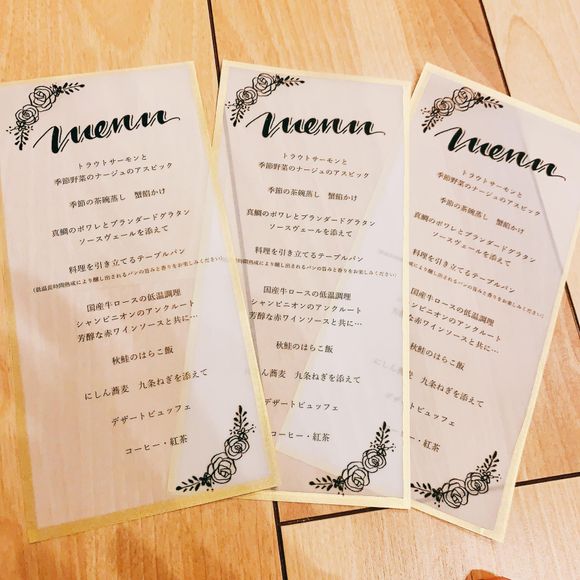 menu
トラウトサーモンと
季節野菜のナージュのアスピック
季節の茶碗蒸し 蟹餡かけ
真鯛のポワレとブランダードグラタン
ソースヴェールを添えて
料理を引き立てるテーブルパン
(低温長時間熟成により醸し出されるパンの旨みと香りをお楽しみください)
国産牛ロースの低温調理
シャンピニオンのアンクルート
芳醇な赤ワインソースと共に…
秋鮭のはらこ飯
にしん蕎麦 九条ねぎを添えて
デザートビュッフェ
コーヒー・紅茶
menu
トラウトサーモンと
季節野菜のナージュのアスピック
季節の茶碗蒸し 蟹餡かけ
真鯛のポワレとブランダードグラタン
ソースヴェールを添えて
料理を引き立てるテーブルパン
(低温長時間熟成により醸し出されるパンの旨みと香りをお楽しみください)
国産牛ロースの低温調理
シャンピニオンのアンクルート
芳醇な赤ワインソースと共に…
秋鮭のはらこ飯
にしん蕎麦 九条ねぎを添えて
デザートビュッフェ
コーヒー・紅茶
menu
トラウトサーモンと
季節野菜のナージュのアスピック
季節の茶碗蒸し 蟹餡かけ
真鯛のポワレとブランダードグラタン
ソースヴェールを添えて
料理を引き立てるテーブルパン
熟成により醸し出されるパンの旨みと香りをお楽しみください)
国産牛ロースの低温調理
シャンピニオンのアンクルート
芳醇な赤ワインソースと共に…
秋鮭のはらこ飯
しん蕎麦 九条ねぎを添えて
デザートビュッフェ
コーヒー・紅茶